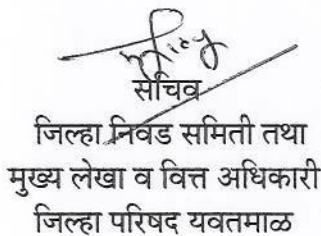 सचिव
जिल्हा निवड समिती तथा
मुख्य लेखा व वित्त अधिकारी
जिल्हा परिषद यवतमाळ